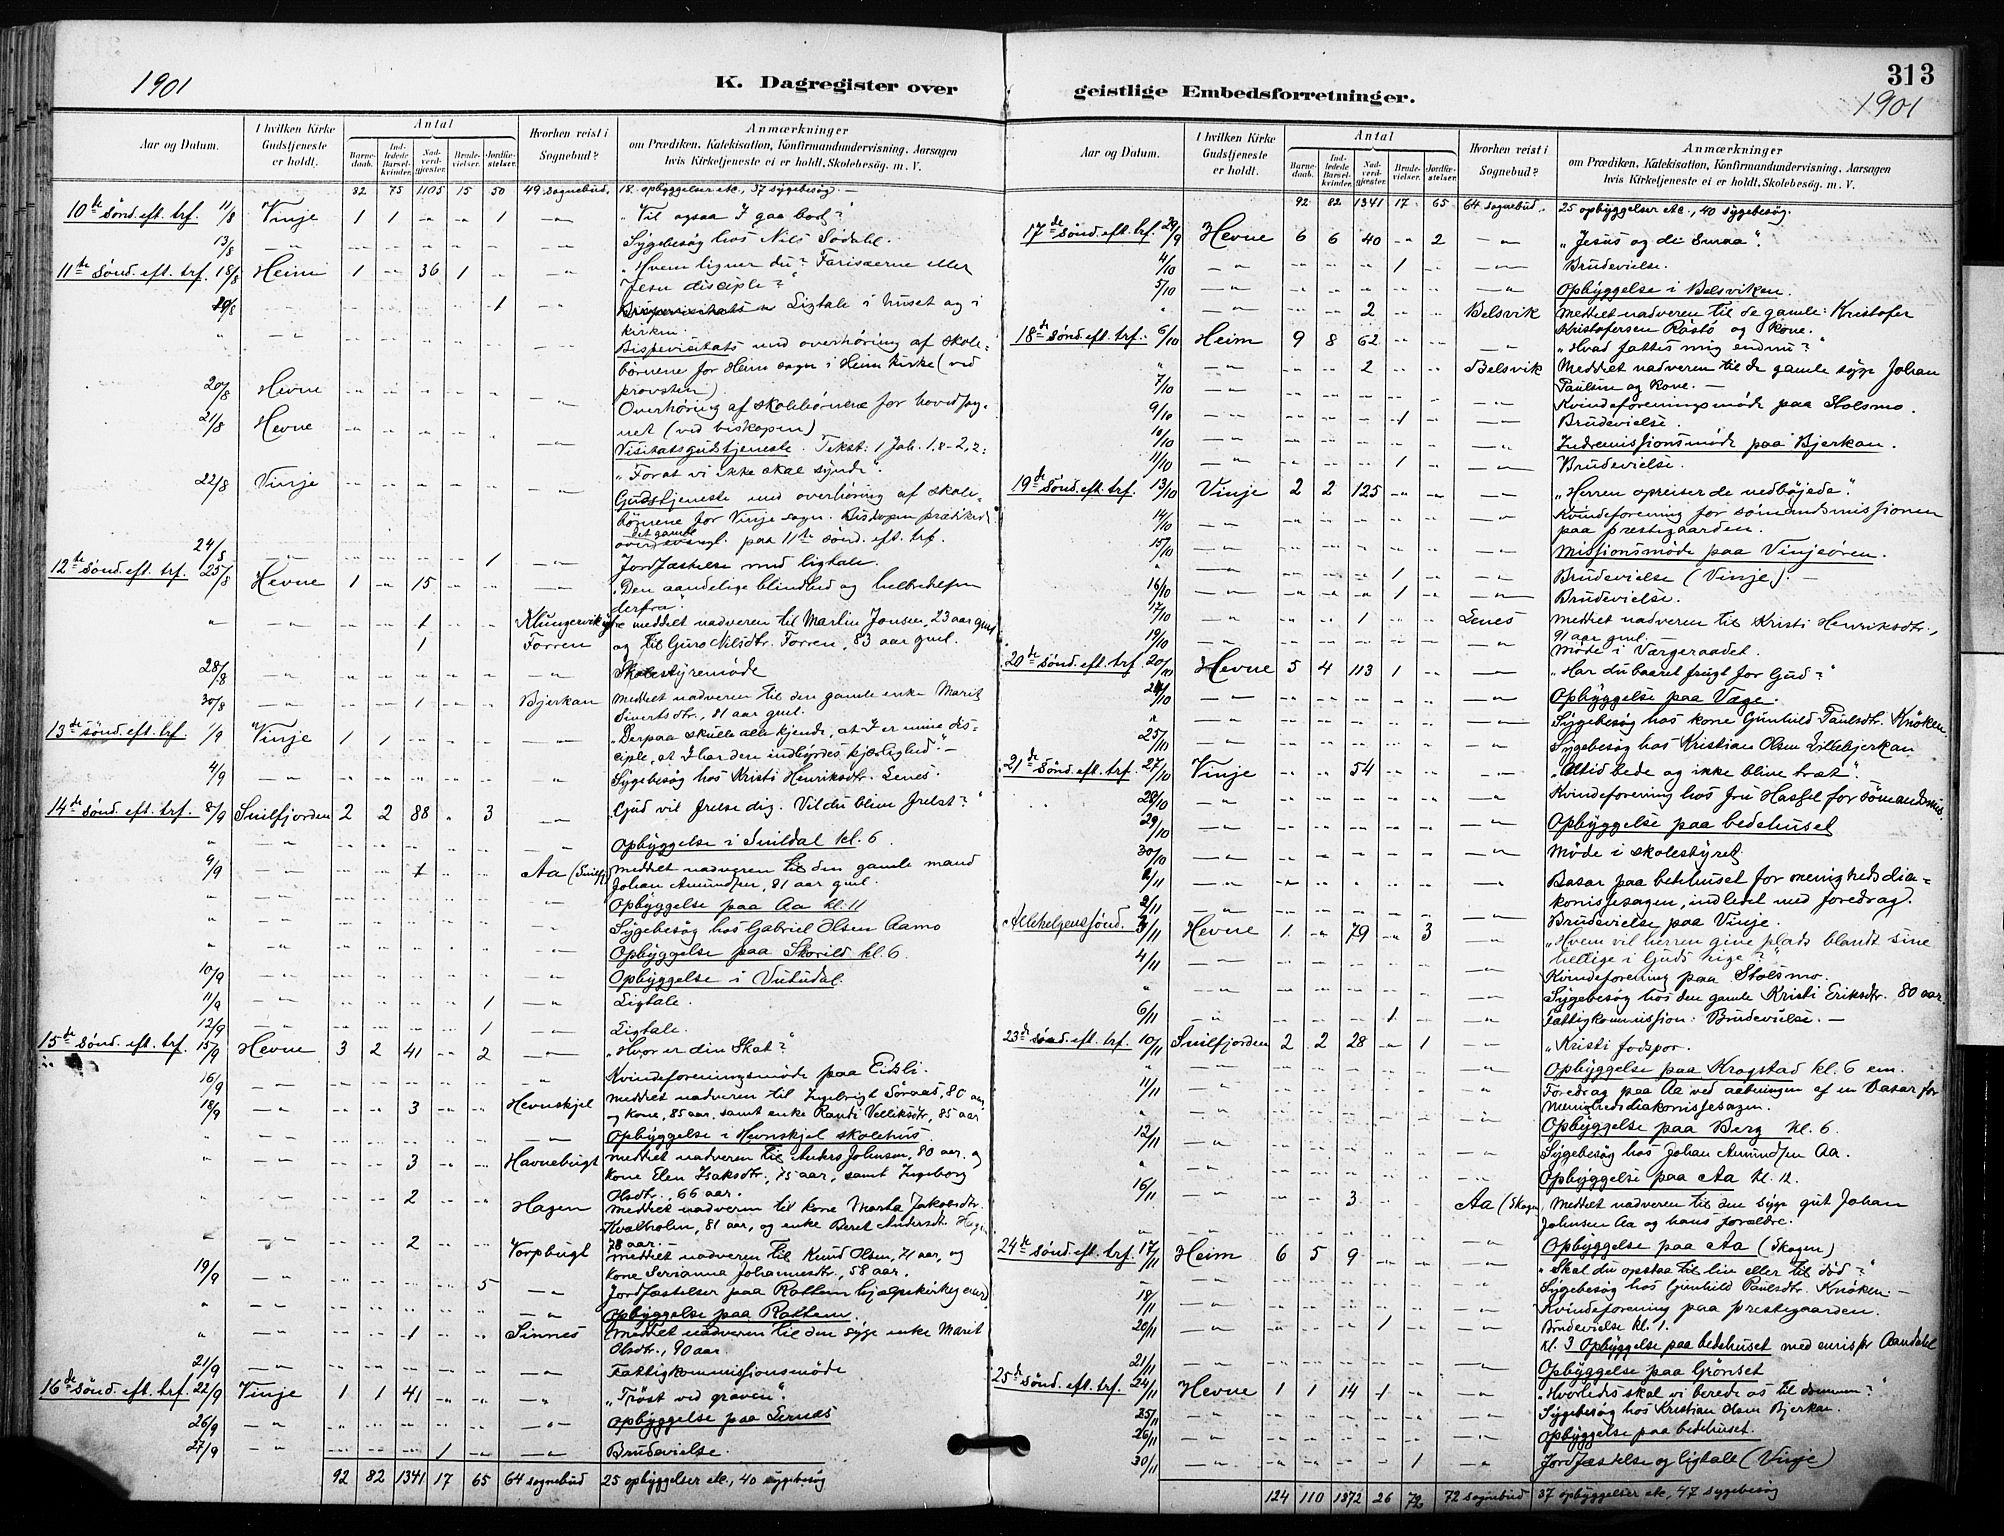 1901
K. Dagregister over
Aar og Datum.
I hvilken Kirke Gudstjeneste er holdt.
Antal
Barnedaab.
Indledede Barselkvinder.
Nadverdgjester.
Brudevielser.
Jordfæstelser.
Hvorhen reist i Sognebud?
Anmærkninger
om Prædiken, Katekisation, Konfirmandundervisning, Aarsagen
hvis Kirketjeneste ei er holdt, Skolebesög. m. V.
82 75 1105 15 50 49 sognebud. 18 opbyggelser etc., 37 sygebesøg. —
10de sønd. eft. trf. 11/8 Vinje 1 1 " " 1 " „Vil ogsaa I gaa bort?“
13/8 " Sygebesøg hos Nils Sødahl.
11te sønd. eft. trf. 18/8 Heim 1 " 36 1 " „Hvem ligner du? Farisæerne eller
Jesu disciple?“
1 " Ligtale i huset og i
kirken.
Bispevisitats med overhøring af skole=
børnene for Heim sogn i Heim kirke (ved
provsten)
20/8 Hevne Overhøring af skolebørnene for hovedsog=
net (ved biskopen)
21/8 Hevne Visitatsgudstjeneste. Tekst: 1 Joh. 1,8-2,2:
„Forat vi ikke skal synde“.
22/8 Vinje Gudstjeneste med overhøring af skole=
børnene for Vinje sogn. Biskopen prædiked
det gamle
paa 11te sønd. eft. trf.
24/8 " 1 " Jordfæstelse med ligtale.
12te sønd. eft. trf. 25/8 Hevne 1 " 15 " „Den aandelige blindhed og helbredelsen
derfra“.
" 1 meddelt nadveren til Martin Jonsen, 23 aar gml
1 Forren og til Guro Nilsdtr. Forren, 83 aar gml.
28/8 " Skolestyremøde
30/8 " 1 Bjerkan Meddelt nadveren til den gamle enke Marit
Sivertsdtr., 81 aar gml.
13de sønd. eft. trf. 1/9 Vinje 1 1 " „Derpaa skulle alle kjende, at I er mine dis=
ciple, at I har den indbyrdes kjærlighed.“ —
4/9 " Sygebesøg hos Kristi Henriksdtr. Lenes.
14de sønd. eft. trf. 8/9 Snilfjorden 2 2 88 " 3 " „Gud vil frelse dig. Vil du blive frelst?“
" Opbyggelse i Snildal kl. 6
9/9 " 1 Aa (Snilfj) Meddelt nadveren til den gamle mand
Johan Amundsen, 81 aar gml.
" Opbyggelse paa Aa kl. 11
" Sygebesøg hos Gabriel Olsen Aamo
" Opbyggelse paa Skorild kl. 6.
10/9 " Opbyggelse i
11/9 " 1 " Ligtale.
12/9 " 1 " Ligtale.
15de sønd. eft. trf. 15/9 Hevne 3 2 41 " 2 " „Hvor er din Skat?“
16/9 " Kvindeforeningsmøde paa Eidsli.
18/9 " 3 Hevnskjel meddelt nadveren til Ingebrigt Sørnæs, 80 aar,
og kone, 85 aar, samt enke Randi 85 aar
" Opbyggelse i Hevnskjel skolehus
" 3 Havnebugt meddelt nadveren til Anders Johnsen, 80 aar, og
kone Elen Isaksdtr., 75 aar, samt Ingeborg
Olsdtr., 66 aar.
" 2 Hagen meddelt nadveren til kone Marta Jakobsdtr.
Kvalholm, 81 aar, og enke Beret Andersdtr. Hag
78 aar. —
" 2 Vorpbugt meddelt nadveren til Knud Olsen, 71 aar, og
kone Serianna Johannesdtr., 58 aar.
19/9 " 5 " Jordfæstelser paa Rottem hjælpekirkegaard
" Opbyggelse paa Rottem
" 1 Sinnes Meddelt nadveren til den syge enke Marit
Olsdtr., 90 aar.
21/9 " Fattigkommissionsmøde
16de sønd. eft. trf. 22/9 Vinje 1 1 41 " „Trøst ved graven“.
26/9 " Opbyggelse paa Lernæs
27/9 " 1 " Brudevielse.
92 82 1341 17 65 64 sognebud 25 opbyggelser etc, 40 sygebesøg
geistlige Embedsforretninger.
313
1901
Aar og Datum.
I hvilken Kirke Gudstjeneste er holdt.
Antal
Barnedaab.
Indledede Barselkvinder.
Nadverdgjester.
Brudevielser.
Jordfæstelser.
Hvorhen reist i Sognebud?
Anmærkninger
om Prædiken, Katekisation, Konfirmandundervisning, Aarsagen
hvis Kirketjeneste ei er holdt, Skolebesög. m. V.
92 82 1341 17 65 64 sognebud. 25 opbyggelser etc., 40 sygebesøg.
17de sønd. eft. trf. 29/9 Hevne 6 6 40 " 2 " „Jesus og de smaa“.
4/10 " 1 " Brudevielse.
5/10 " Opbyggelse i Belsviken.
" 2 Belsvik Meddelt nadveren til de gamle: Kristofer
Kristofersen Røstø og kone.
18de sønd. eft. trf. 6/10 Heim 9 8 62 " „Hvad fattes mig endnu?“
" 2 Belsvik Meddelt nadveren til de gamle syge Johan
Paulsen og kone. —
7/10 " Kvindeforeningsmøde paa Stolsmo.
9/10 " 1 " Brudevielse.
10/10 " Indremissionsmøde paa Bjerkan.
11/10 " 1 " Brudevielse.
19de sønd. eft. trf. 13/10 Vinje 2 2 125 " „Herren opreiser de nedbøjede“.
14/10 " Kvindeforening for sømandsmissionen
paa prestegaarden.
15/10 " Missionsmøde paa Vinjeøren.
" 1 " Brudevielse (Vinje). —
16/10 " 1 " Brudevielse.
17/10 " 1 Lenes Meddelt nadveren til Kristi Henriksdtr.,
91 aar gml.
19/10 " Møde i Værgeraadet.
20de sønd. eft. trf. 20/10 Hevne 5 4 113 1 " „Har du baaret frugt for Gud?“
24/10 " Opbyggelse paa Vage.
" Sygebesøg hos kone Gunhild Paulsdtr. Knöken.
25/10 " Sygebesøg hos Kristian Olsen Lillebjerkan
21de sønd. eft. trf. 27/10 Vinje " 54 " „Altid bede og ikke blive træt“.
28/10 " Kvindeforening hos fru Hassel for sømandsmis.
29/10 " Opbyggelse paa bedehuset
30/10 " Møde i skolestyret
" Basar paa bedehuset for menighedsdia=
konissesagen, indledet med foredrag.
2/11 " Brudevielse paa Vinje.
Allehelgenssønd. 3/11 Hevne 1 " 79 " 3 " „Hvem vil herren give plads blandt sine
hellige i Guds rige?“
4/11 " Kvindeforening paa Stolsmo.
" Sygebesøg hos den gamle Kristi Eriksdtr. 80 aar.
6/11 " 1 " Fattigkommission: Brudevielse. —
23de sønd. eft. trf. 10/11 Snilfjorden 2 2 28 " 1 " „Kristi fodspor.
" Opbyggelse paa Krogstad kl. 6 em.
11/11 " Foredrag paa Aa ved aabningen af en Basar for
Menighedsdiakonissesagen.
" Opbyggelse paa Berg kl. 6.
12/11 " Sygebesøg hos Johan Amundsen Aa.
" Opbyggelse paa Aa kl. 12.
16/11 " 3 Aa (Skogen) Meddelt nadveren til den syge gut Johan
Johnsen Aa og hans forældre.
" Opbyggelse paa Aa (Skogen)
24de sønd. eft. trf. 17/11 Heim 6 5 9 " „Skal du opstaa til liv eller til død?“
" Sygebesøg hos Gunhild Paulsdtr. Knöken —
18/11 " Kvindeforening paa prestegaarden.
20/11 " 1 " Brudevielse kl. 1.
kl. 3 Opbyggelse paa bedehuset med emispr Aandahl
21/11 " Opbyggelse paa Grønset
25de sønd. eft. trf. 24/11 Hevne 1 1 14 1 " „Hvorledes skal vi berede os til dommen?“
25/11 " Sygebesøg hos Kristian Olsen Bjerkan.
26/11 " Opbyggelse paa bedehuset.
30/11 " 1 " Jordfæstelse og ligtale (Vinje)
124 110 1872 26 72 72 sognebud 37 opbyggelser etc, 47 sygebesøg